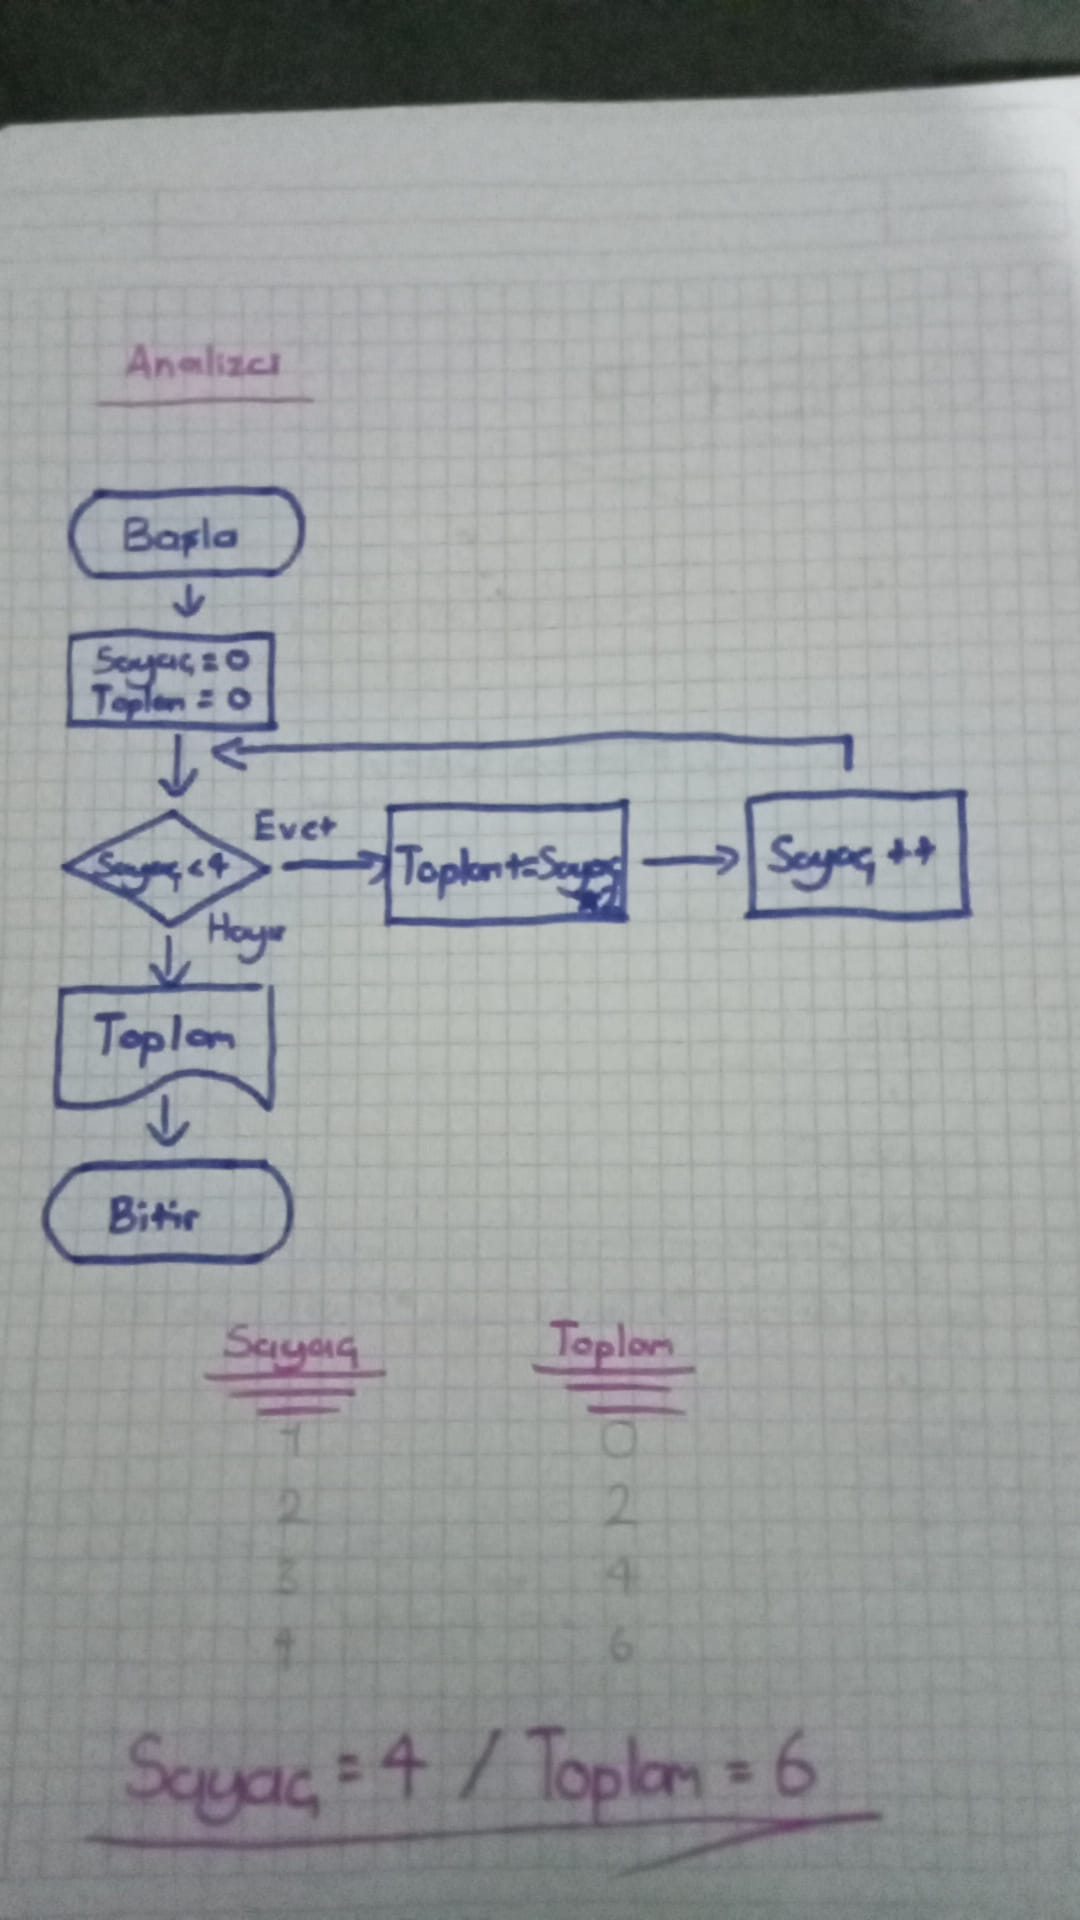 Analizci
Başla
Sayaç = 0
Toplam = 0
Sayaç < 4
Evet
Toplam += Sayaç
Sayaç ++
Hayır
Toplam
Bitir
Sayaç Toplam
1 0
2 2
3 4
4 6
Sayaç = 4 / Toplam = 6